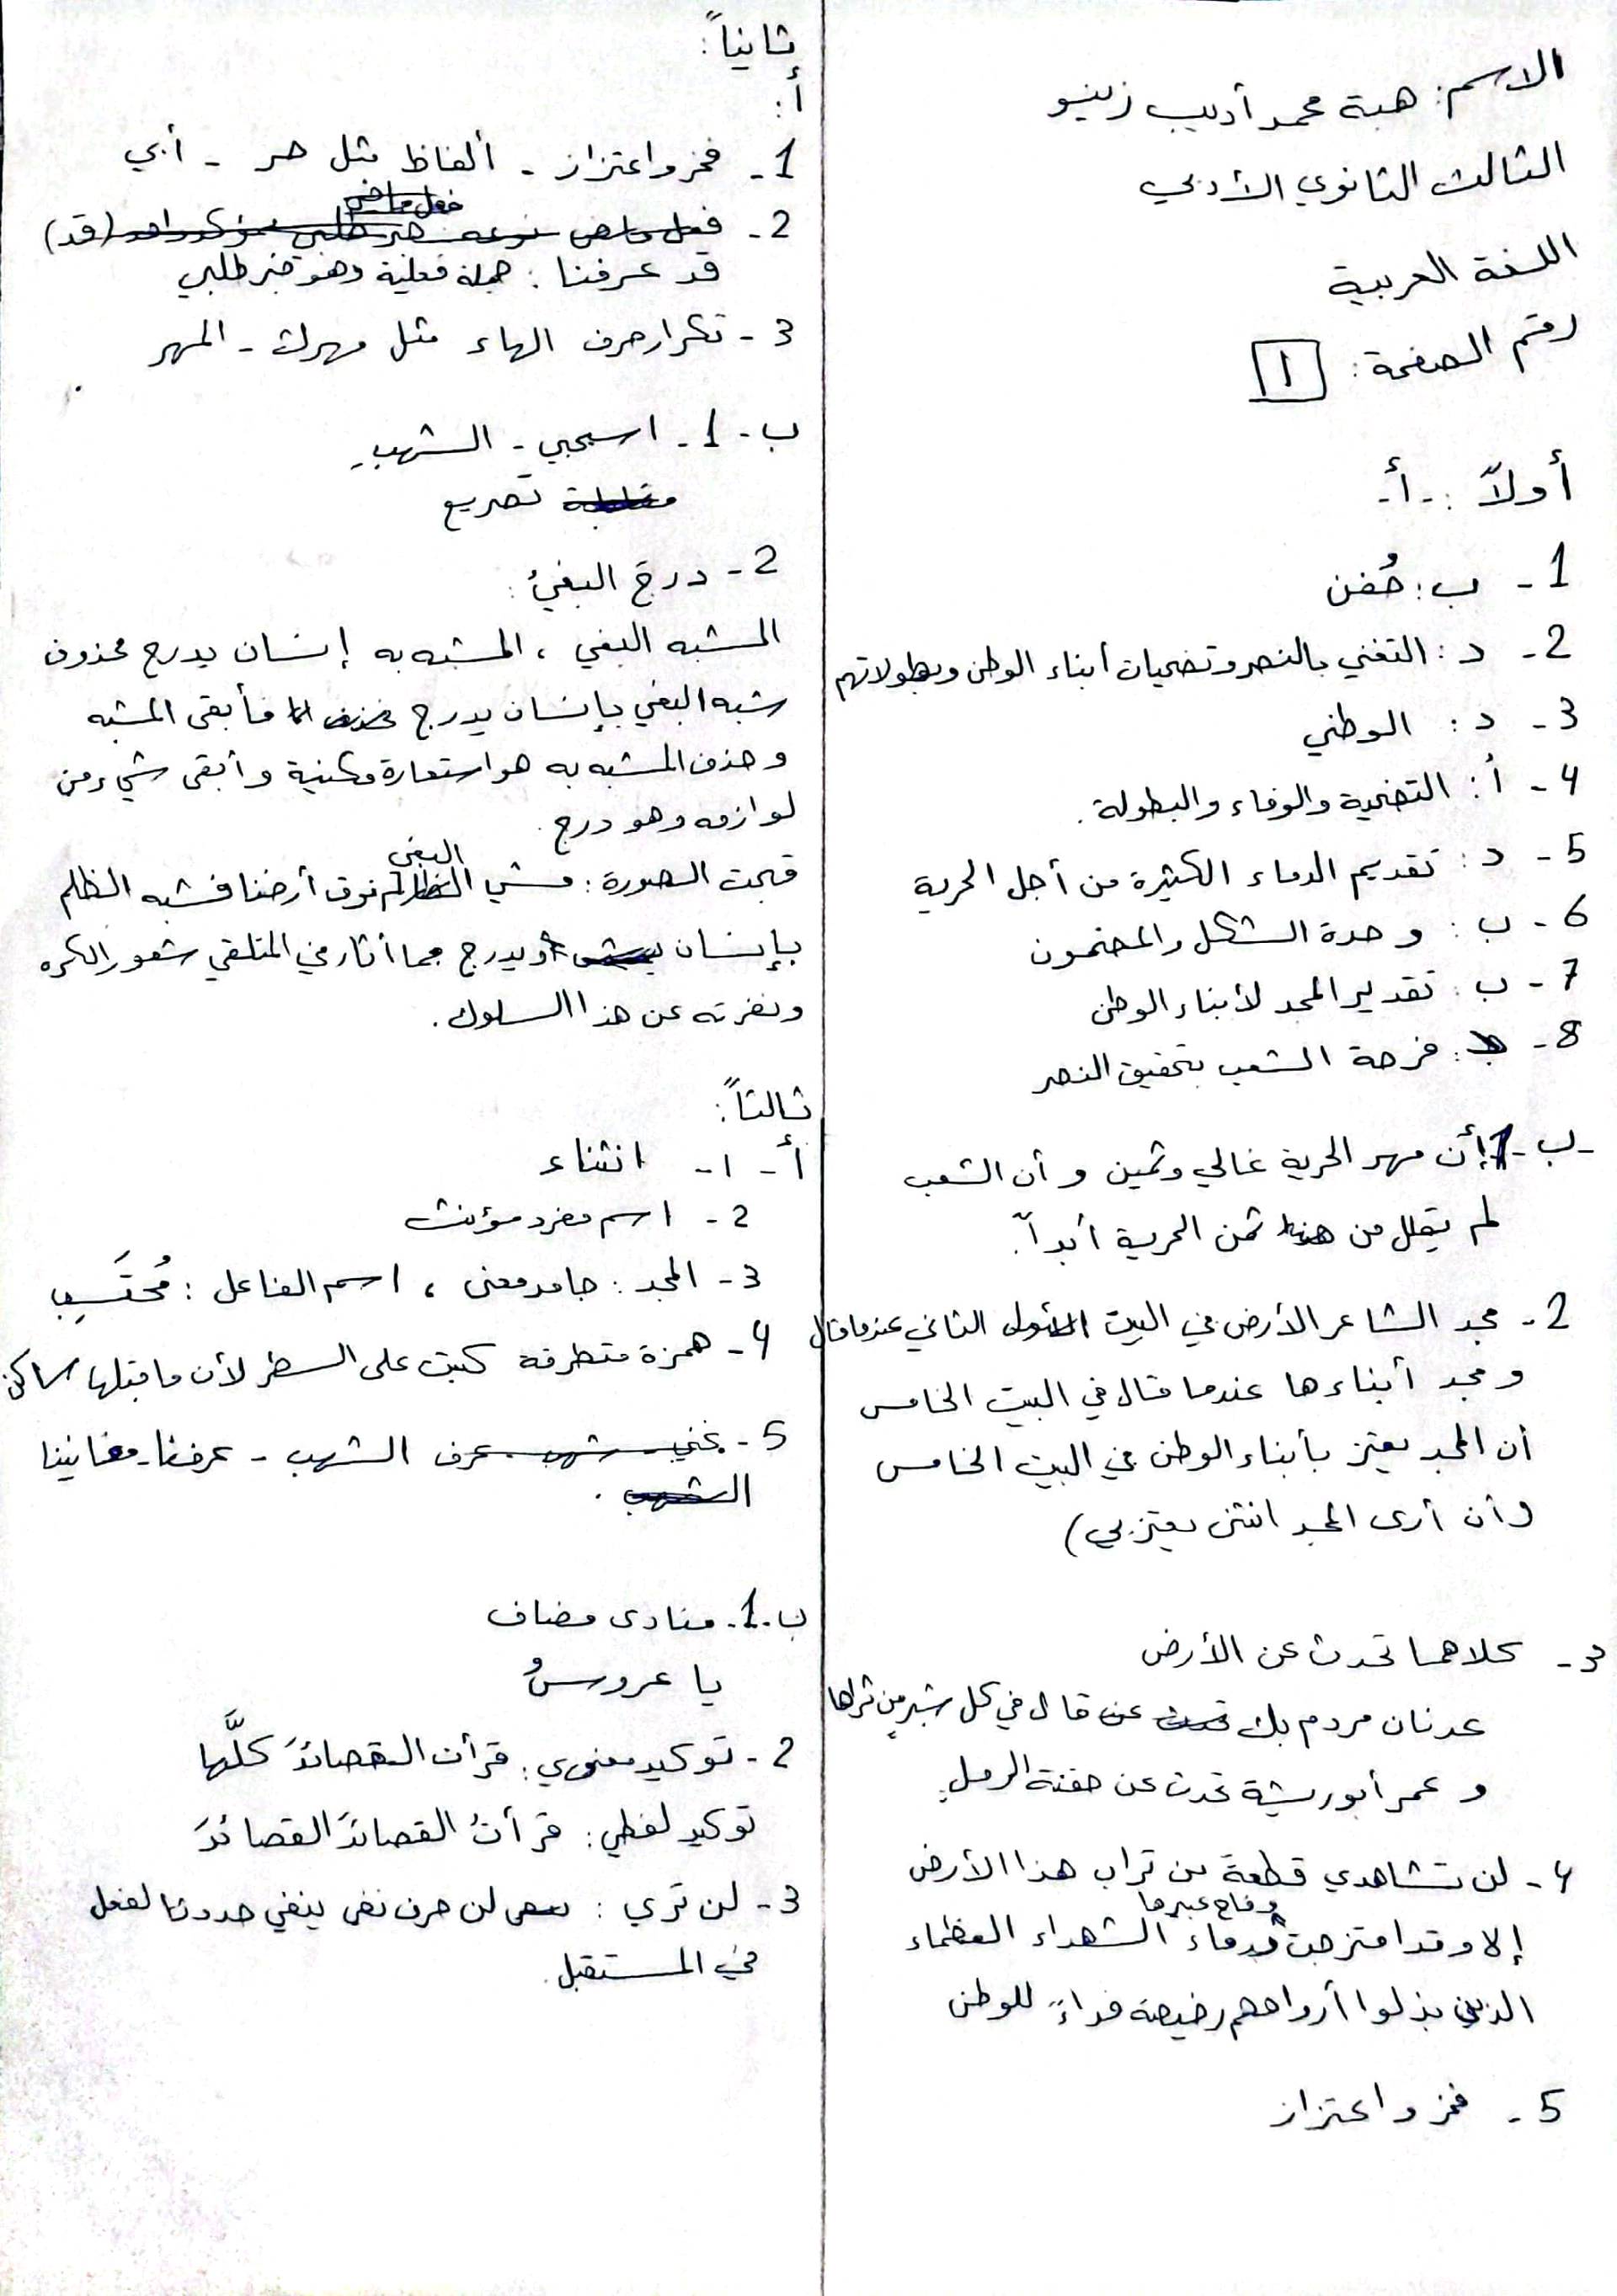 الاسم: هبة محمد أديب زينو
الثالث الثانوي الأدبي
اللغة العربية
رقم الصفحة: 1
أولاً :- أ-
1- ب: حُفن
2- د: التغني بالنصر وتضحيات أبناء الوطن وبطولاتهم
3- د: الوطني
4- أ: التضحية والوفاء والبطولة.
5- د: تقديم الدماء الكثيرة من أجل الحرية
6- ب: وحدة الشكل والمضمون
7- ب: تقدير المجد لأبناء الوطن
8- : فرحة الشعب بتحقيق النصر
-ب-1 أن مهر الحرية غالي وثمين و أن الشعب
لم يقلل من ثمن الحرية أبداً.
2- مجد الشاعر الأرض في البيت الثاني عندما قال
و مجد أبناءها عندما قال في البيت الخامس
أن المجد يعتز بأبناء الوطن في البيت الخامس
(أن أرى المجد انثنى يعتز بي)
3- كلاهما تحدث عن الأرض
عدنان مردم بك قال في كل شبرٍ من ثراها
و عمر أبو ريشة تحدث عن حفنة الرمل.
4- لن تشاهدي قطعة من تراب هذا الأرض
إلا وقد امتزجت بدماء الشهداء العظماء وفاح عبيرها
الذين بذلوا أرواحهم رخيصة فداءً للوطن
5- فخر واعتزاز
ثانياً:
أ:
1- فخر واعتزاز - ألفاظ مثل حر - أبي
2- فعل ماضي (قد)
قد عرفنا: جملة فعلية وهو خبر طلبي
3- تكرار حرف الهاء مثل مهرك - المهر
ب-1- اسحبي - الشهب.
تصريع
2- درجَ البغيُ:
المشبه البغي، المشبه به إنسان يدرج محذوف
شبه البغي بإنسان يدرج فأبقى المشبه
وحذف المشبه به هو استعارة مكنية وأبقى شيء من
لوازمه وهو درج.
قبحت الصورة: مشي البغي فوق أرضنا فشبه الظلم
بإنسان يدرج مما أثار في المتلقي شعور الكره
ونفرته عن هذا السلوك.
ثالثاً:
أ- 1- انثناء
2- اسم مفرد مؤنث
3- المجد: جامد معنى، اسم الفاعل: مُحتَسِب
4- همزة متطرفة كتبت على السطر لأن ما قبلها ساكن
5- عرف الشهب - عرفنا - مغانينا
ب-1- منادى مضاف
يا عروسُ
2- توكيد معنوي: قرأت القصائدَ كلَّها
توكيد لفظي: قرأتُ القصائدَ القصائدَ
3- لن تري: لن حرف نفي ينفي حدوث الفعل
في المستقبل.